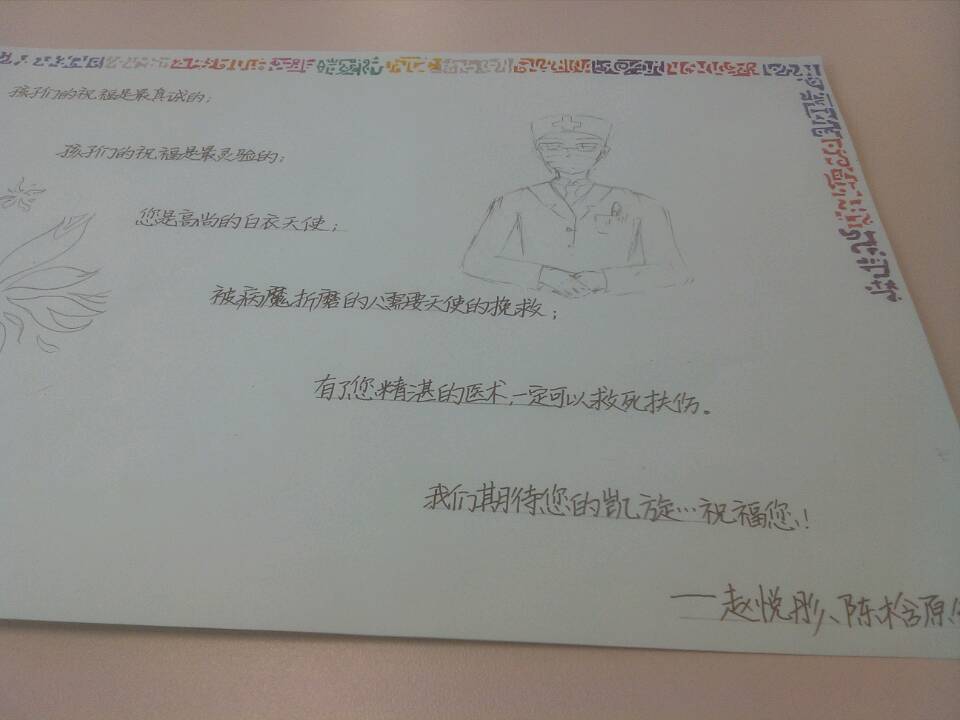 孩子们的祝福是最真诚的；
孩子们的祝福是最灵验的；
您是高尚的白衣天使；
被病魔折磨的人需要天使的挽救；
有了您精湛的医术，一定可以救死扶伤。
我们期待您的凯旋…祝福您！
——赵悦彤、陈晗原